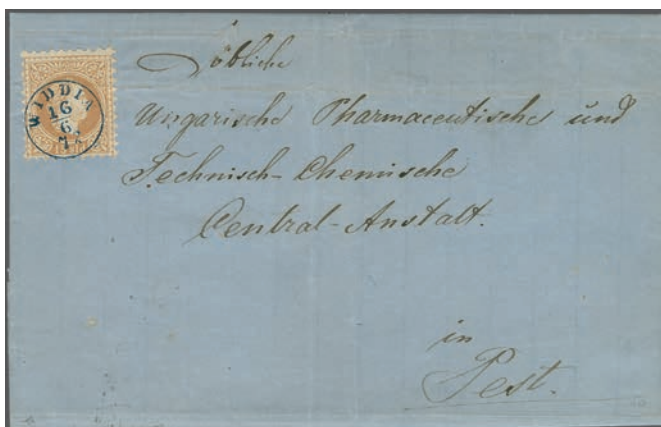 Löbliche
WIDDIN
16
6
Ungarische Pharmaceutische und
Technisch-Chemische
Central-Anstalt.
in
Pest.